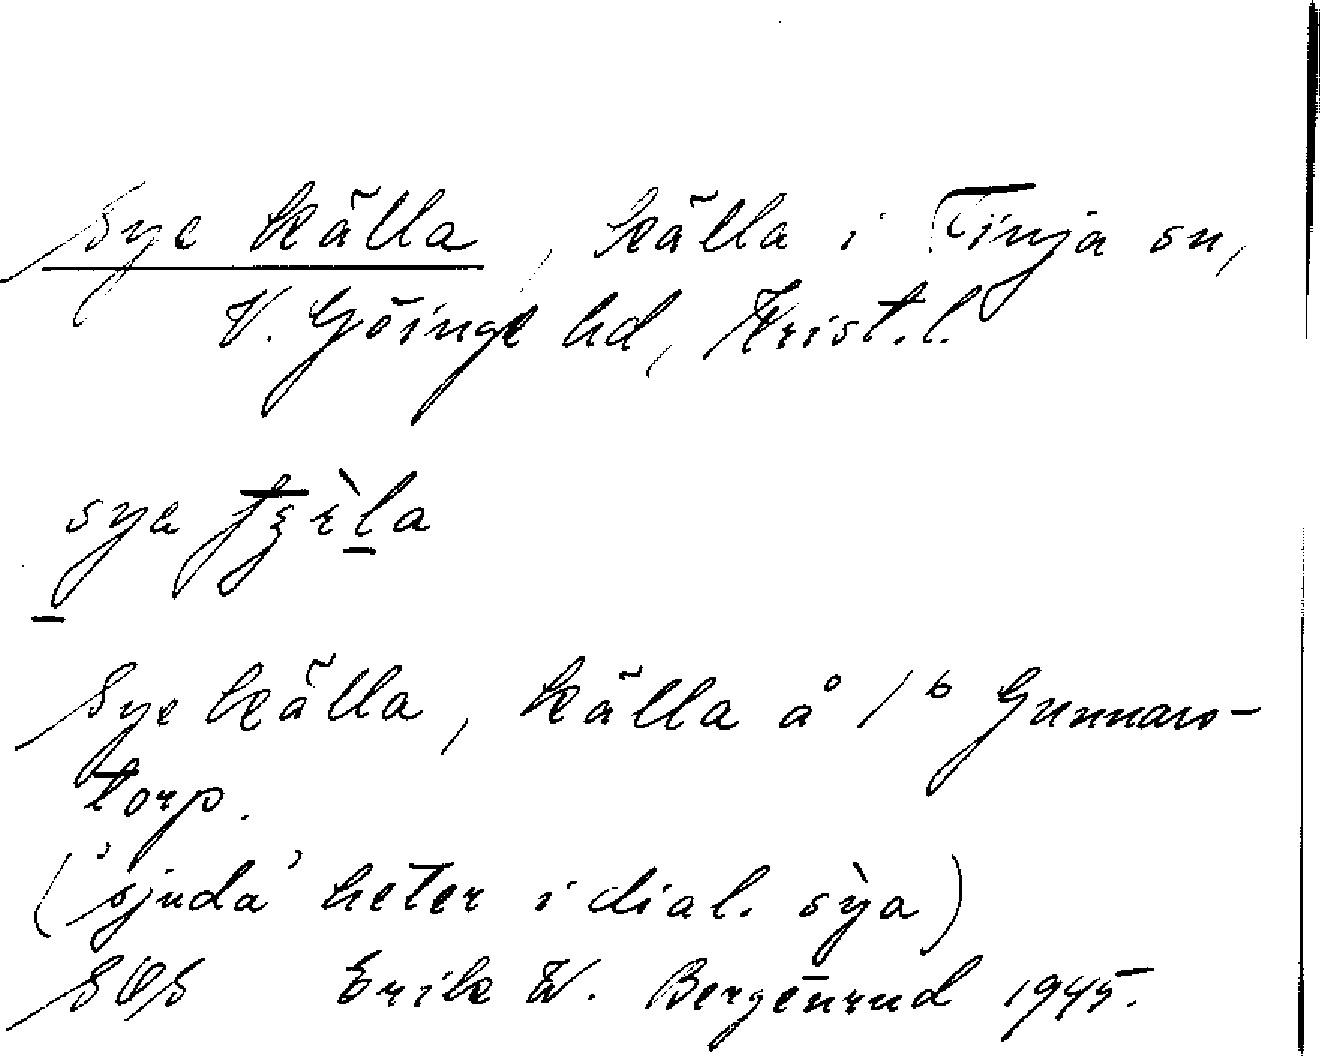 Sye källa, källa i Finja sn,
V. Göinge hd, Krist. l.
Sye källa, källa å 1⁶ Gunnars-
torp.
('sjuda' heter i dial. sỳa)
SOS Erik W. Bergenrud 1945.